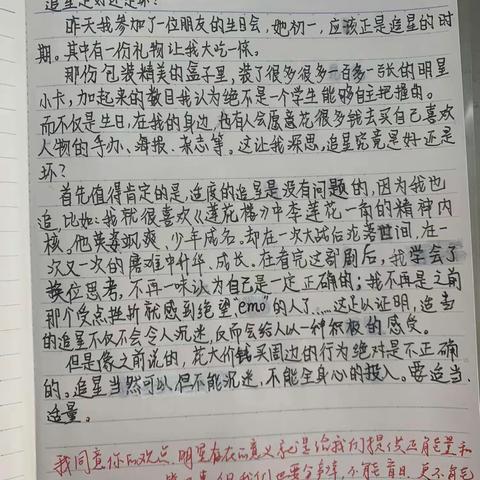 追星是好还是坏?
昨天我参加了一位朋友的生日会,她初一,应该正是追星的时
期。其中有一份礼物让我大吃一惊。
那份包装精美的盒子里,装了很多很多一百多一张的明星
小卡,加起来的数目我认为绝不是一个学生能够自主把握的。
而不仅是生日,在我的身边,也有人会愿意花很多钱去买自己喜欢
人物的手办、海报、杂志等。这让我深思,追星究竟是好还是
坏?
首先值得肯定的是,适度的追星是没有问题的,因为我也
追,比如:我就很喜欢《莲花楼》中李莲花一角的精神内
核。他英姿飒爽、少年成名。却在一次大战后沦落世间,在一
次又一次的磨难中升华、成长。在看完这部剧后,我学会了
换位思考,不再一味认为自己是一定正确的;我不再是之前
那个受点挫折就感到绝望,“emo”的人了……这足以证明,适当
的追星不仅不会令人沉迷,反而会给人以一种积极的感受。
但是像之前说的,花大价钱买周边的行为绝对是不正确
的。追星当然可以但不能沉迷,不能全身心的投入。要适当、
适量。
我同意你的观点,明星存在的意义就是给我们提供正能量和
但我们也要分事,不能盲目,更不能